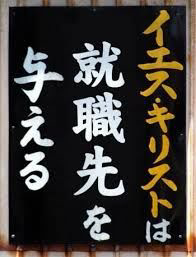 イエス・キリストは
就職先を
与える